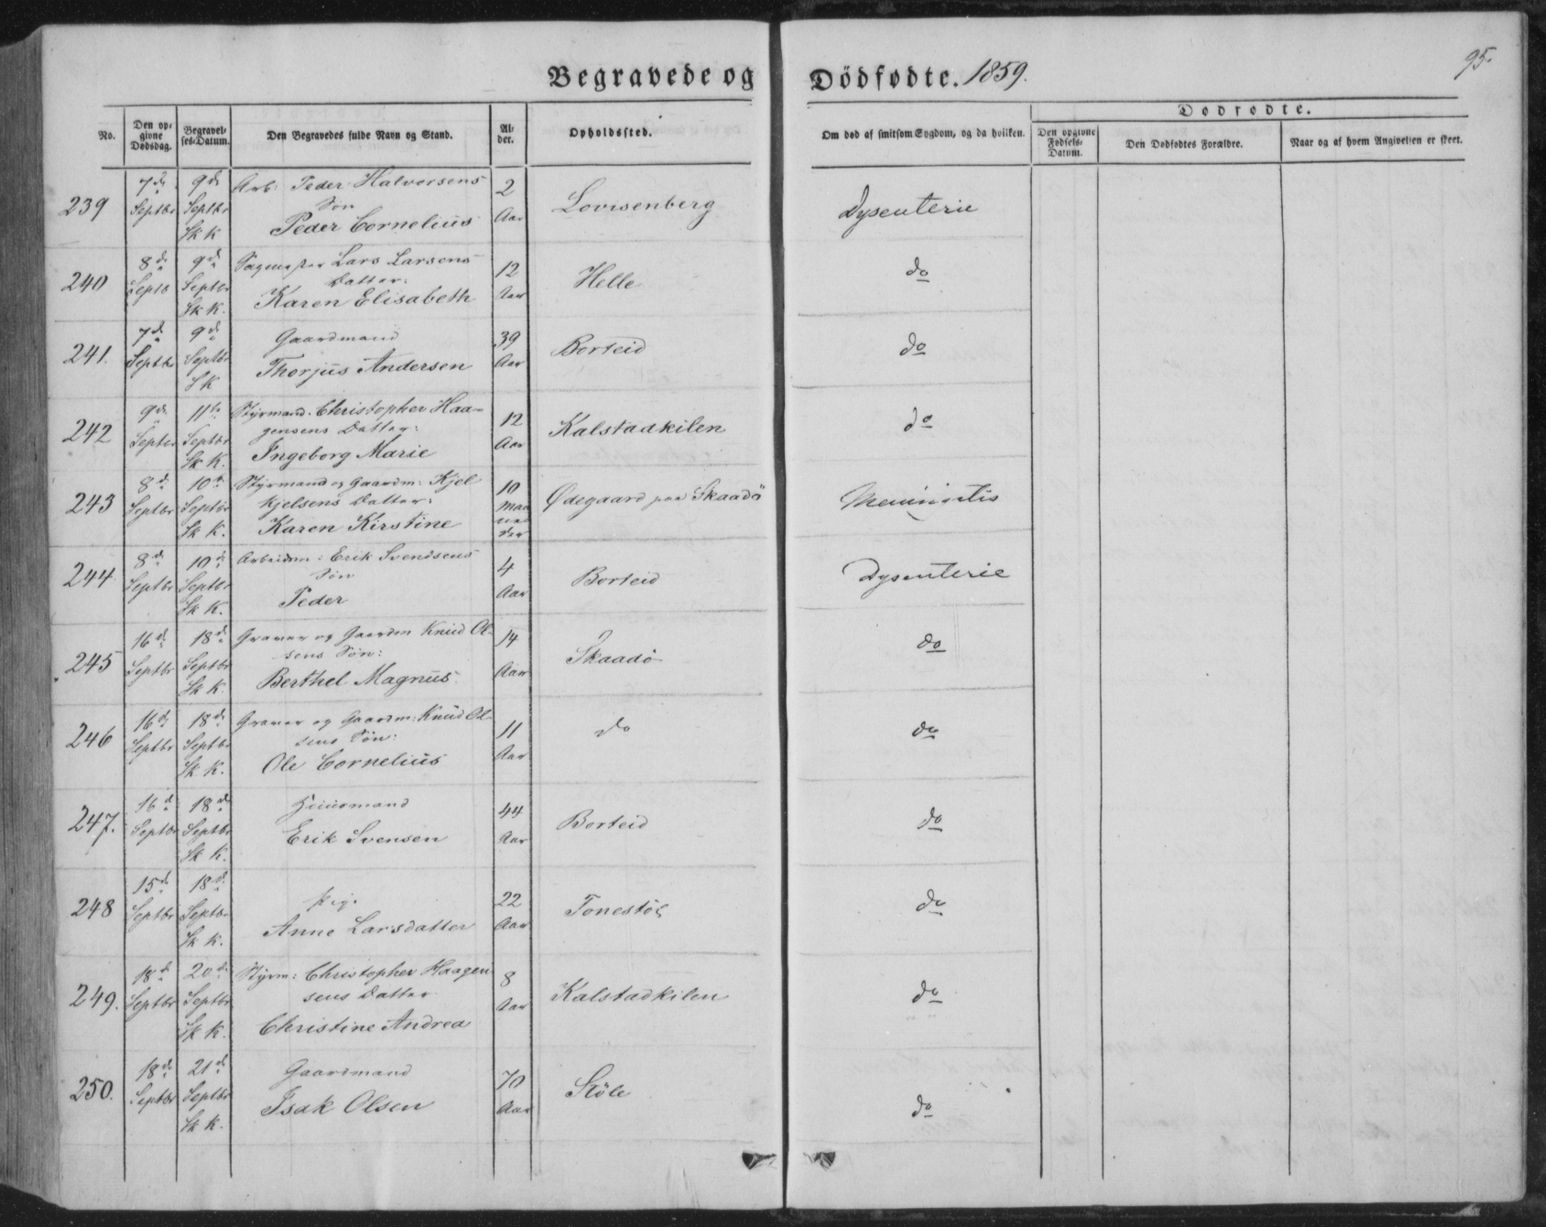 95.
Begravede og Dödfødte. 1859.
Dødfødte.
No.
Den opgivne Dødsdag.
Begravelses-Datum.
Den Begravedes fulde Navn og Stand.
Alder.
Opholdssted.
Om død af smitsom Sygdom, og da hvilken.
Den opgivne Fødsels-Datum.
Den Dødfødtes Forældre.
Naar og af hvem Angivelsen er skeet.
239 7de Septbr 9de Septbr Sk K Arb: Peder Halvorsens Søn Peder Cornelius 2 Aar Lovisenberg Dysenterie
240 8de Septb 9de Septbr Sk K. Lars Larsens Datter: Karen Elisabeth 12 Aar Helle do
241. 7de Septbr 9de Septbr S K Gaardmand Thorjus Andersen 39 Aar Borteid do
242 9de Septbr 11te Septbr Sk K. Styrmand. Christopher Haagensens Datter: Ingeborg Marie 12 Aar Kalstadkilen do
243 8de Septbr 10de Septbr Sk K. Styrmand og Gaardm: Kjel Kjelsens Datter: Karen Kirstine 10 Maaneder Ødegaard paa Skaadö Meningitis
244 8de Septbr 10de Septbr Sk K. Arbeidsm: Erik Svendsens Søn Peder 4 Aar Borteid Dysenterie
245 16de Septbr 18de Septbr Sk K Graver og Gaardm Knud Olsens Søn: Berthel Magnus 14 Aar Skaadö do
246 16de Septbr 18de Septbr Sk K. Graver og Gaardm: Knud Olsens Søn: Ole Cornelius 11 Aar do do
247. 16de Septbr 18de Septbr Sk K. Huusmand Erik Svensen 44 Aar Borteid do
248 15de Septbr 18de Septbr Sk K. Pige Anne Larsdatter 22 Aar Tonestöl do
249. 18de Septbr 20de Septbr Sk K. Styrm: Christopher Haagensens Datter Christine Andrea 8 Aar Kalstadkilen do
250. 18de Septbr 21de Septbr Sk K. Gaardmand Isak Olsen 70 Aar Stöle do